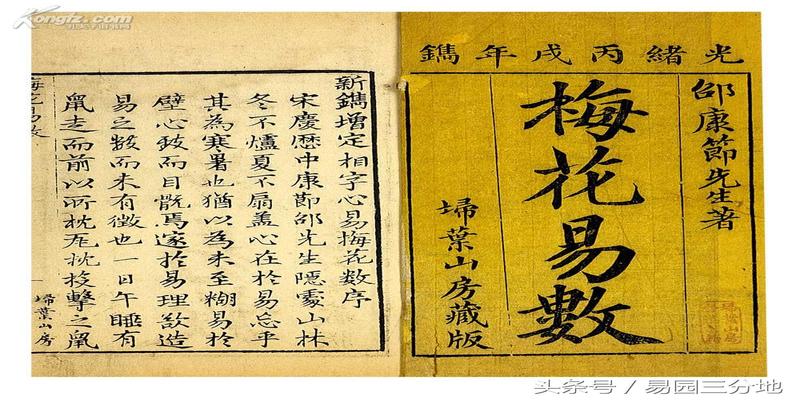 Kongfz.com
光緒丙戌年鐫
邵康節先生著
梅花易數
埽葉山房藏版
新鐫增定相字心易梅花數序
宋慶歷中康節邵先生隱處山林
冬不爐夏不扇蓋心在於易忘乎
其為寒暑也猶以為未至糊易於
壁心致而目翫焉邃於易理欲造
易之數而未有徵也一日午睡有
鼠走而前以所枕瓦枕投擊之鼠
一
埽葉山房
梅花易數
头条号 / 易园三分地